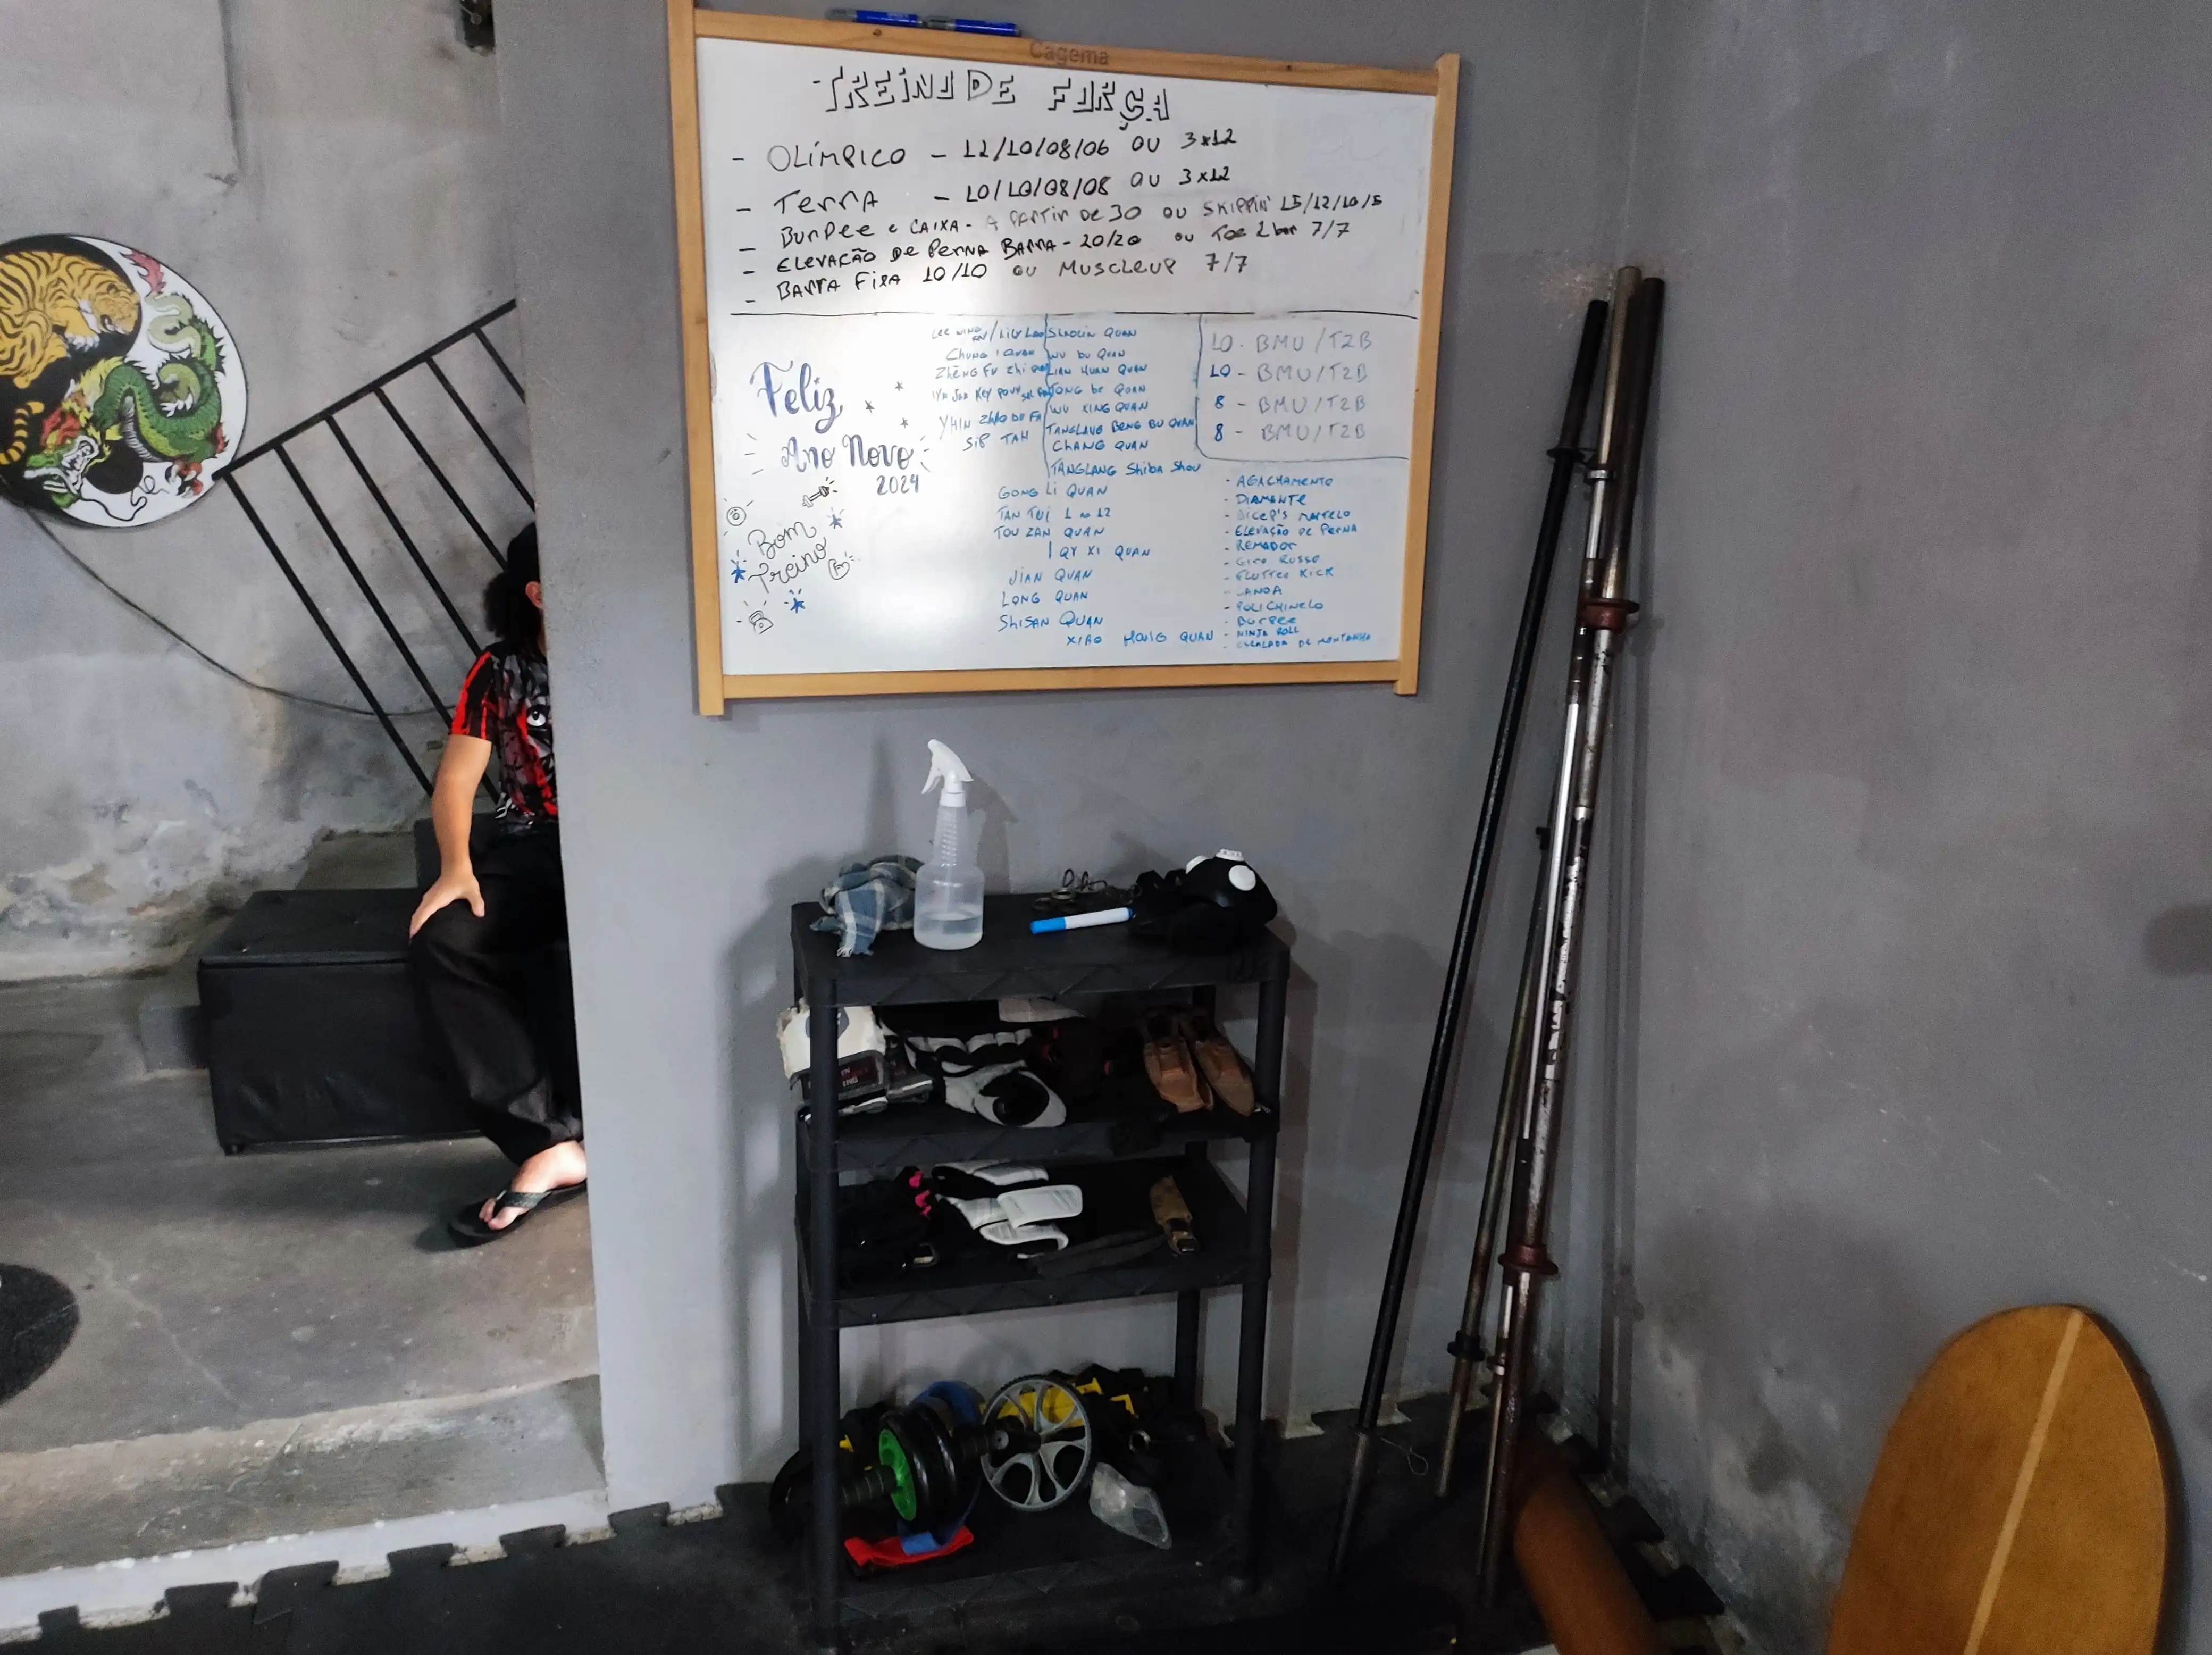 Cagema
TREINO DE FORÇA
- OLÍMPICO - 12/10/08/06 OU 3x12
- TERRA - 10/10/08/08 OU 3x12
- BURPEE E CAIXA - A PARTIR DE 30 OU SKIPPIN' 15/12/10/5
- ELEVAÇÃO DE PERNA BARRA - 20/20 OU TOE 2 bar 7/7
- BARRA FIXA 10/10 OU MUSCLEUP 7/7
Feliz
Ano Novo
2024
Bom
Treino
CHUNG I QUAN
ZHĒNG FU ZHI
SIP TAH
SHAOLIN QUAN
WU BU QUAN
LIAN HUAN QUAN
TONG BE QUAN
WU XING QUAN
TANGLANG BENG BU QUAN
CHANG QUAN
TANGLANG SHIBA SHOU
GONG LI QUAN
TAN TUI 1 ao 12
TOU ZAN QUAN
QUAN
JIAN QUAN
LONG QUAN
SHISAN QUAN
XIAO HONG QUAN
10 - BMU/T2B
10 - BMU/T2B
8 - BMU/T2B
8 - BMU/T2B
- AGACHAMENTO
- DIAMANTE
- BICEP'S MARTELO
- ELEVAÇÃO DE PERNA
- REMADOR
- GIRO RUSSO
- FLUTTER KICK
- POLICHINELO
- BURPEE
- NINJA ROLL
- ESCALADA DE MONTANHA